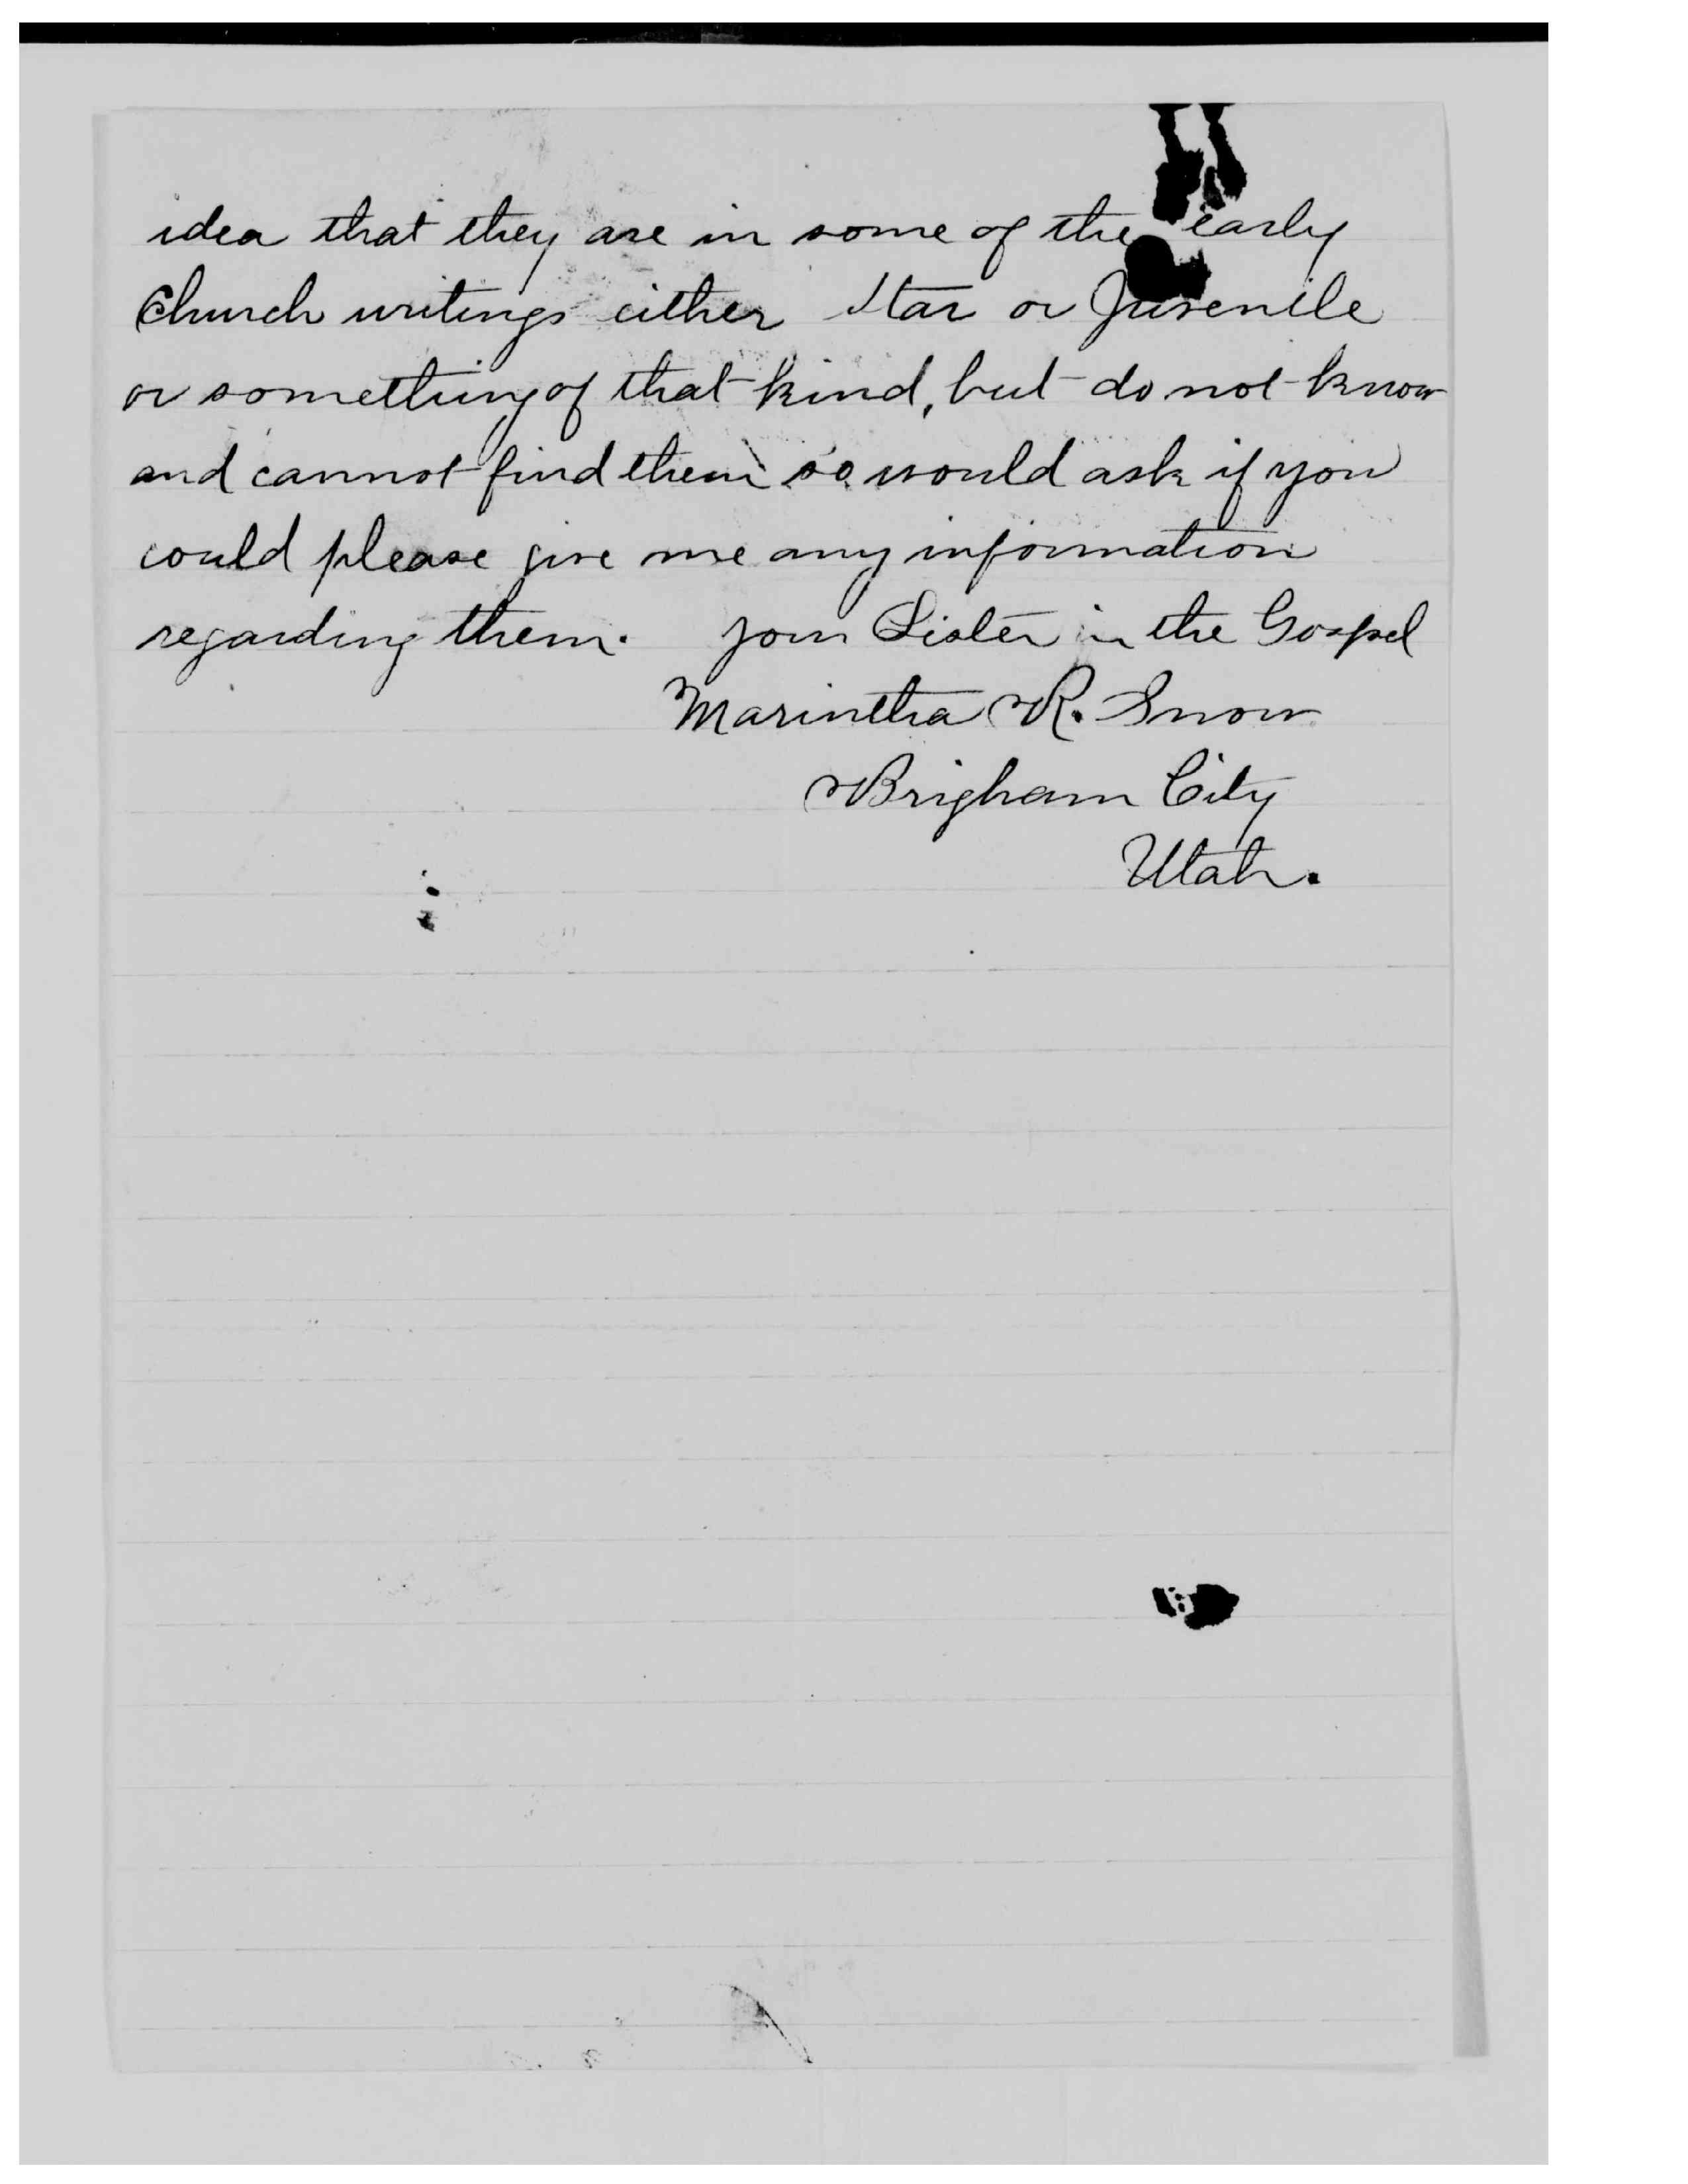 idea that they are in some of the early
Church writings either Star or Juvenile
or something of that kind, but do not know
and cannot find them so would ask if you
could please give me any information
regarding them. Your Sister in the Gospel
Marintha R. Snow
Brigham City
Utah.